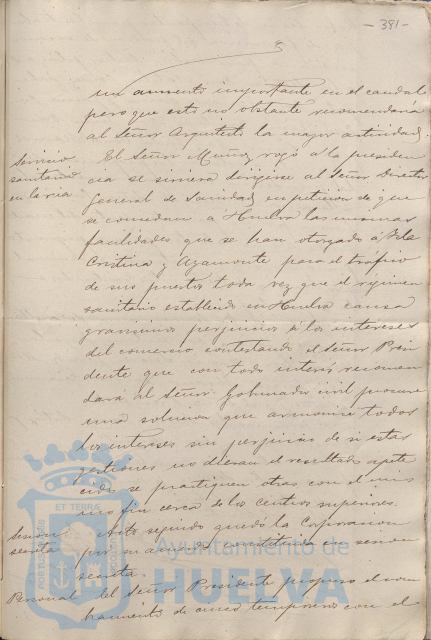 - 391 -
un aumento importante en el caudal
pero que esto no obstante recomendaría
al Señor Arquitecto la mayor actividad.
Servicio
sanitario
en la ria
El Señor Muñoz rogó á la presiden
cia se sirviera dirigirse al Señor Director
general de Sanidad en petición de que
se concedan a Huelva las mismas
facilidades que se han otorgado á Isla
Cristina y Ayamonte para el tráfico
de sus puertos toda vez que el regimen
sanitario establecido en Huelva causa
grandisimos perjuicios á los intereses
del comercio contestando el Señor Presi
dente que con todo interés recomen
dará al Señor Gobernador civil procure
una solucion que armonice todos
los intereses sin perjuicio de si estas
gestiones no dieran el resultado apete
cido se practiquen otras con el mis
mo fin cerca de los centros superiores.
Sesion
secreta
Acto seguido quedó la Corporacion
por su acuerdo constituida en sesion
secreta.
Personal
El Señor Presidente propuso el nom
bramiento de cinco temporeros con el
ET TERRA
Ayuntamiento de
HUELVA